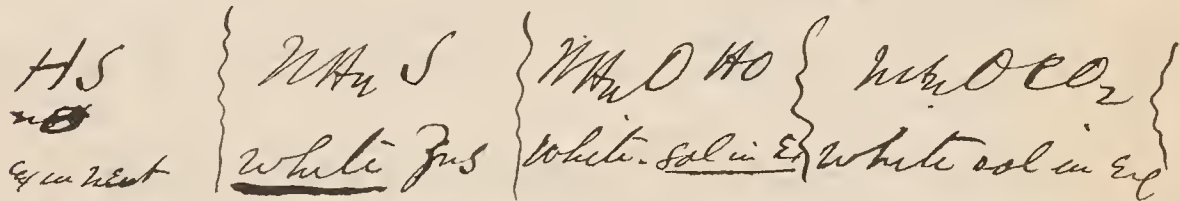 HS NH4 S NH4O HO NH4O CO2
no
Ex in neut white ZnS White. sol in Ex White sol in Exc